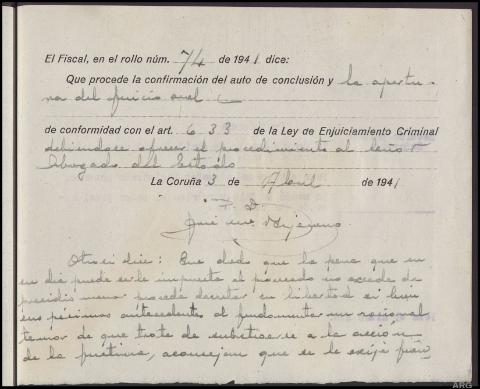 El Fiscal, en el rollo núm. 74 de 1941 dice:
Que procede la confirmación del auto de conclusión y la apertu-
ra del juicio oral
de conformidad con el art. 633 de la Ley de Enjuiciamiento Criminal
debiendose ofrecer el procedimiento al señor
Abogado del Estado
La Coruña 3 de Abril de 1941
F. D.
José
Otrosi dice: Que dado que la pena que en
su dia puede serle impuesta al procesado no excede de
presidio menor procede decretar su libertad si bien
sus pésimos antecedentes al fundamentar un racional
temor de que trate de substraerse a la acción
de la justicia, aconsejan que se le exija fian
ARG